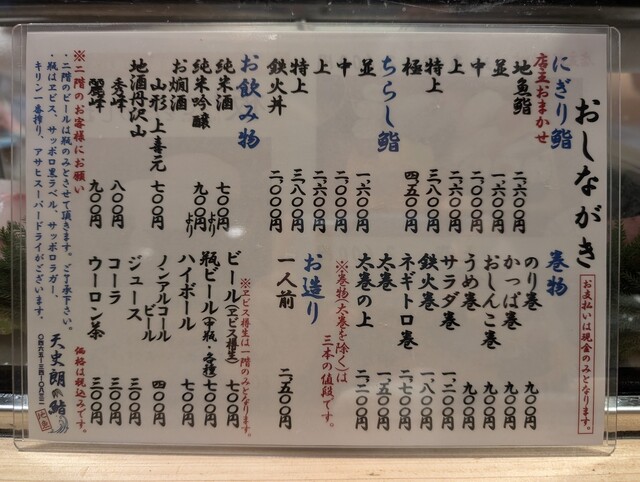 おしながき
お支払いは現金のみとなります。
にぎり鮨
店主おまかせ
地魚鮨 二、六〇〇円
並 一、六〇〇円
中 二、〇〇〇円
上 二、六〇〇円
特上 三、八〇〇円
極 四、五〇〇円
ちらし鮨
並 一、六〇〇円
中 二、〇〇〇円
上 二、六〇〇円
特上 三、八〇〇円
鉄火丼 二、〇〇〇円
巻物
のり巻 九〇〇円
かっぱ巻 九〇〇円
おしんこ巻 九〇〇円
うめ巻 九〇〇円
サラダ巻 一、二〇〇円
鉄火巻 一、八〇〇円
ネギトロ巻 二、七〇〇円
太巻 一、五〇〇円
太巻の上 二、二〇〇円
※巻物(太巻を除く)は
三本の値段です。
お造り
一人前 二、五〇〇円
お飲み物
純米酒 七〇〇円より
純米吟醸 九〇〇円より
お燗酒
山形 上喜元 七〇〇円
地酒丹沢山
秀峰 八〇〇円
麗峰 九〇〇円
※ヱビス樽生は一階のみとなります。
ビール(ヱビス樽生) 七〇〇円
瓶ビール(中瓶・各種) 七〇〇円
ハイボール 七〇〇円
ノンアルコールビール 四〇〇円
ジュース 三〇〇円
コーラ 三〇〇円
ウーロン茶 三〇〇円
※二階のお客様にお願い
・二階のビールは瓶のみとさせて頂きます。ご了承下さい。
・瓶はヱビス、サッポロ黒ラベル、サッポロラガー、
キリン一番搾り、アサヒスーパードライがございます。
価格は税込みです。
天史朗鮨